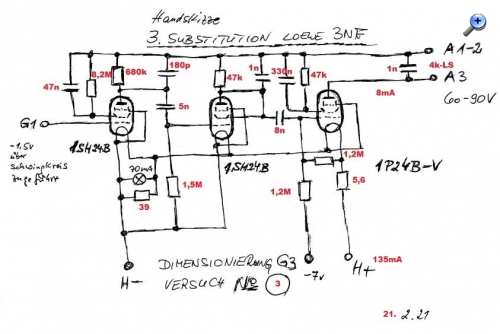 Handskizze
3. SUBSTITUTION LOEWE 3NF
A1-2
4k-LS
A3
60-90V
8mA
1n
47n
8,2M
680k
180p
5n
47k
1n
330n
47k
8n
G1
-1,5V
über
Schwingkreis
zugeführt
1SH24B
1SH24B
1P24B-V
70mA
39
1,5M
1,2M
1,2M
5,6
H-
-7V
H+
135mA
DIMENSIONIERUNG G3
VERSUCH No 3
21. 2.21